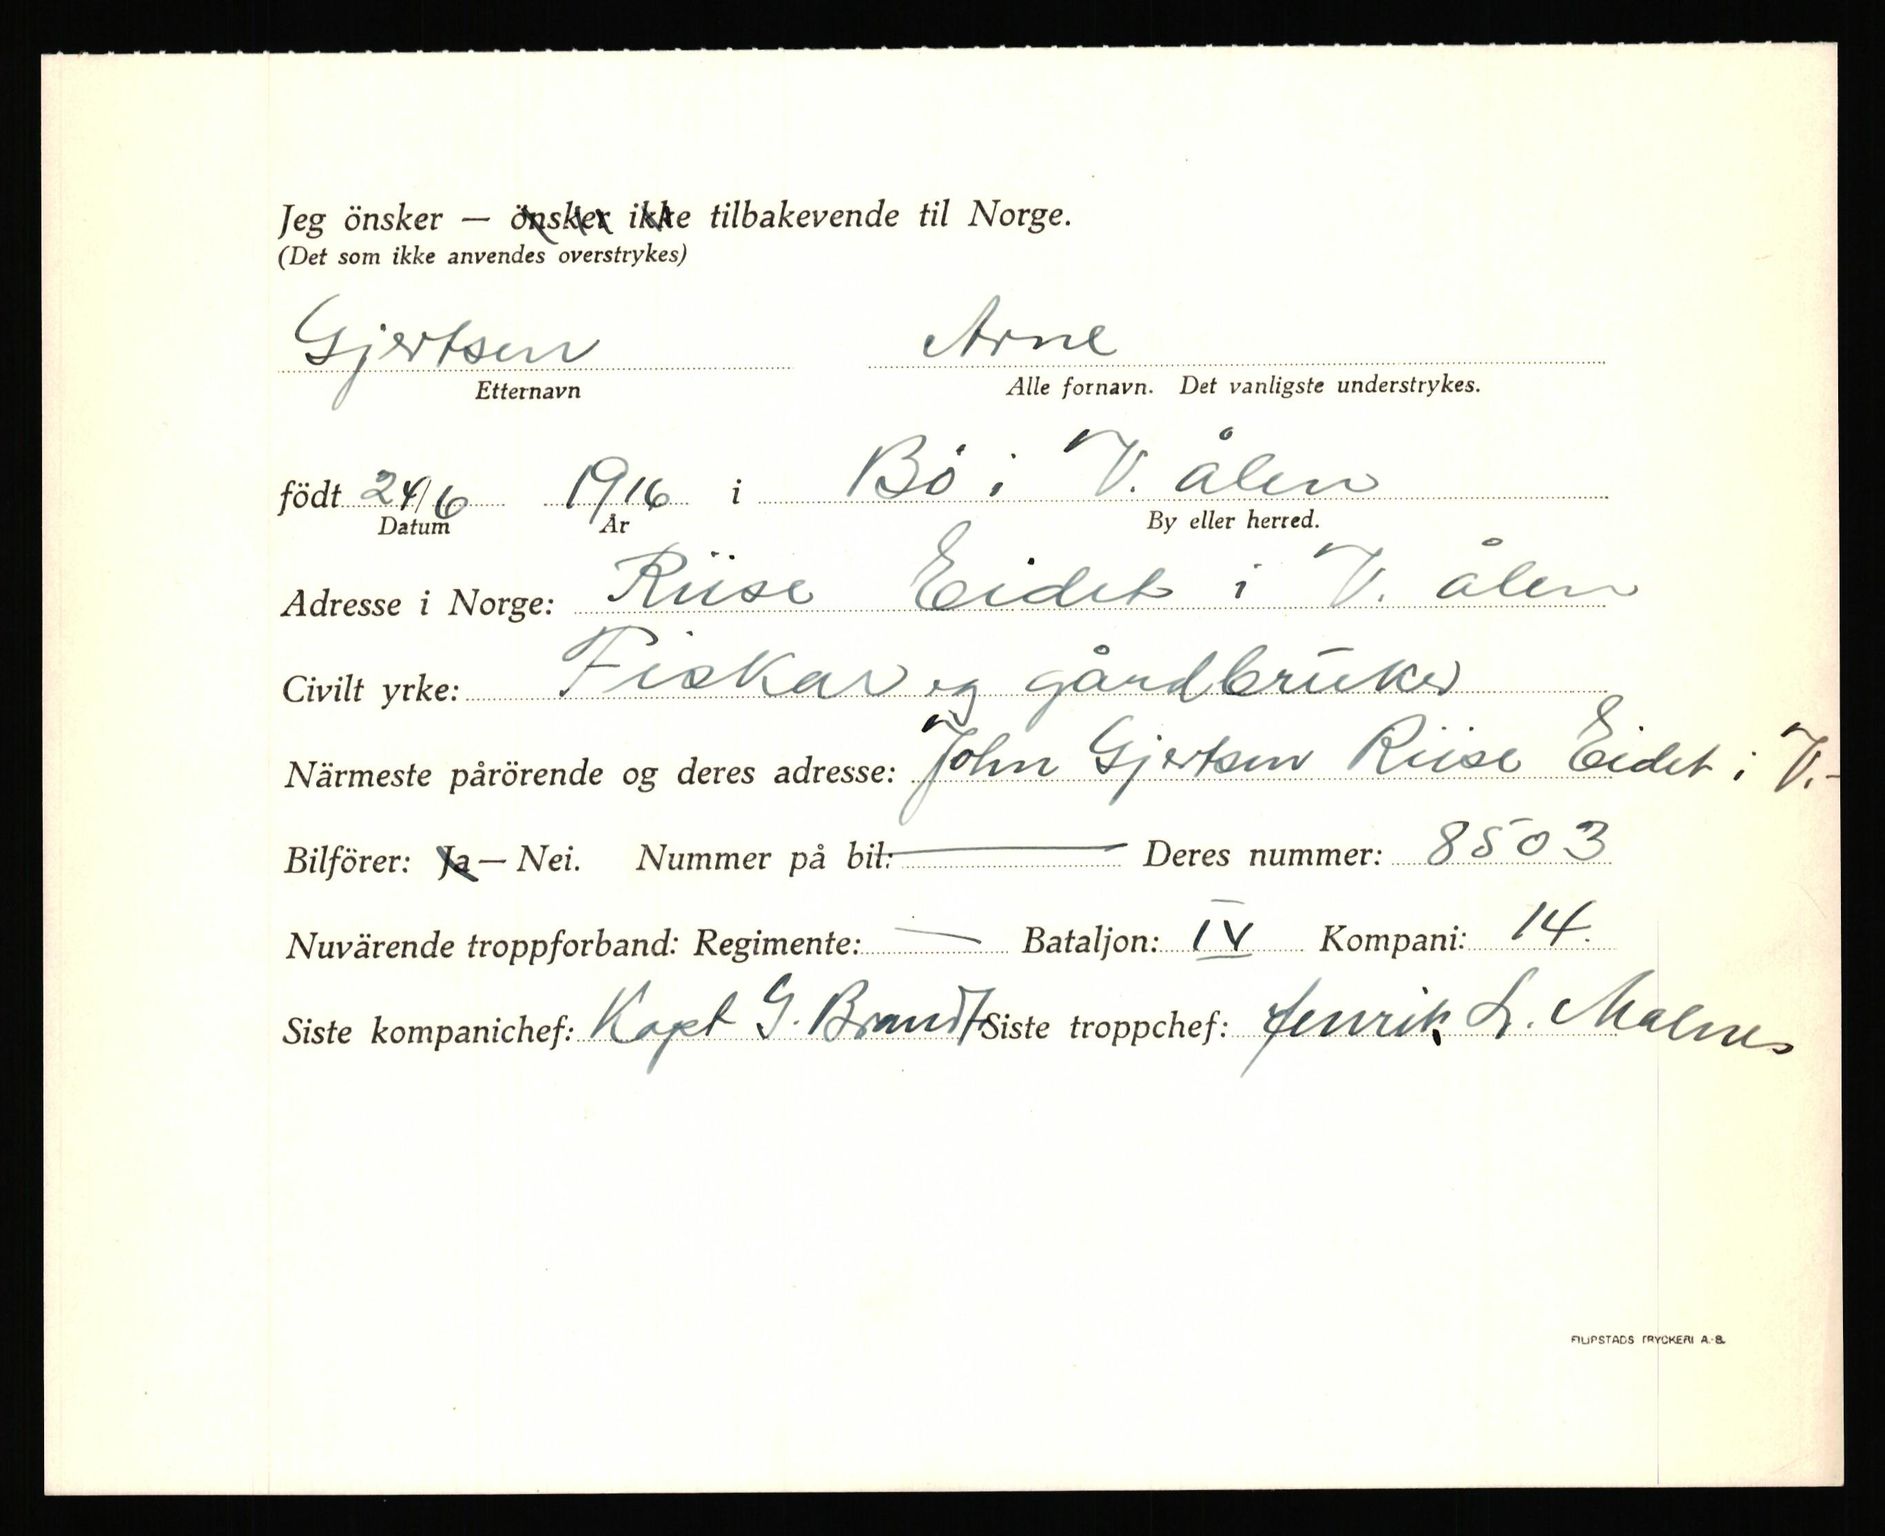 Jeg önsker — önsker ikke tilbakevende til Norge.
(Det som ikke anvendes overstrykes)
Gjertsen Arne
Etternavn Alle fornavn. Det vanligste understrykes.
födt 24/6 1916 i Bö i V. ålen
Datum År By eller herred.
Adresse i Norge: Riise Eidet i V. ålen
Civilt yrke: Fiskar og gårdbruker
Närmeste pårörende og deres adresse: John Gjertsen Riise Eidet i V.-
Bilförer: Ja — Nei. Nummer på bil: — Deres nummer: 8503
Nuvärende troppforband: Regimente: — Bataljon: IV Kompani: 14.
Siste kompanichef: Kapt G. Brandt Siste troppchef: Henrik L. Malnes
FILIPSTADS TRYCKERI A.-B.